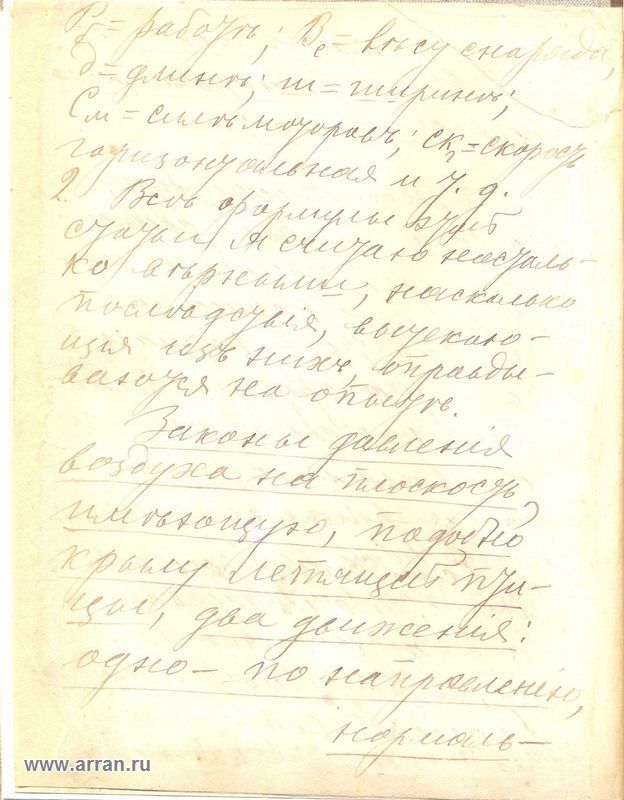 Рб = работѣ; Вс = вѣсу снаряда,
д = длинѣ; ш = ширинѣ;
См = силѣ моторовъ; скг = скорость
горизонтальная и т. д.
2. Всѣ формулы этой
статьи я считаю настоль-
ко вѣрными, насколько
послѣдствія, вытекаю-
щія изъ нихъ, оправды-
ваются на опытѣ.
Законы давленія
воздуха на плоскость,
имѣющую, подобно
крылу летящей пти-
цы, два движенія:
одно – по направленію,
нормаль-
www.arran.ru